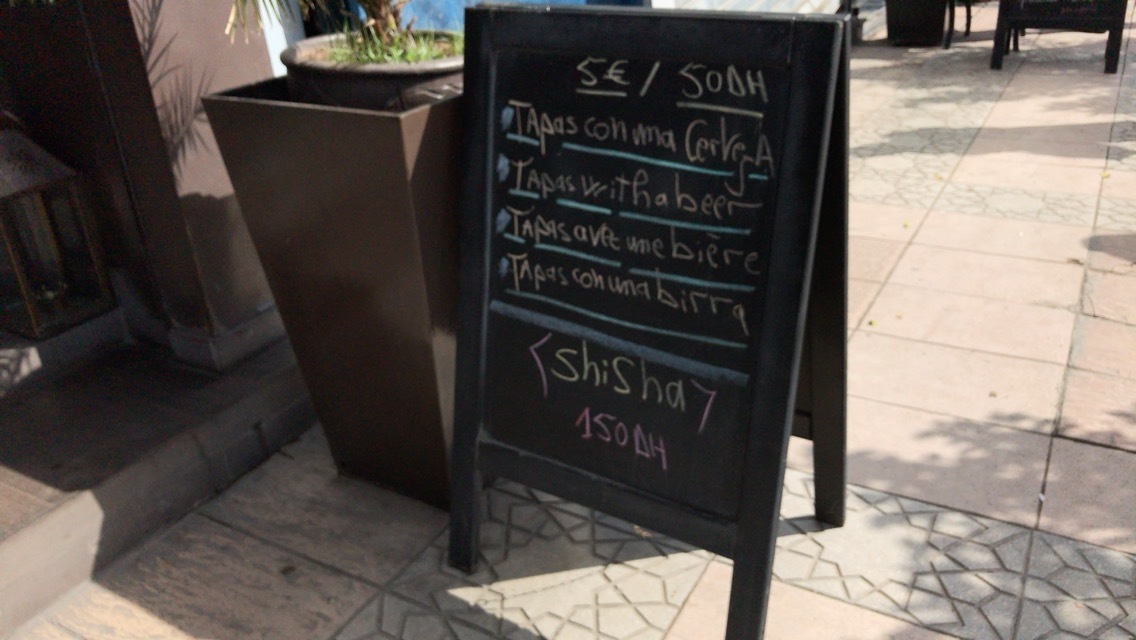 5€ / 50DH
TApas con una CerVezA
TApas with a beer
TApas avec une bière
TApas con una birra
<ShiSha>
150DH